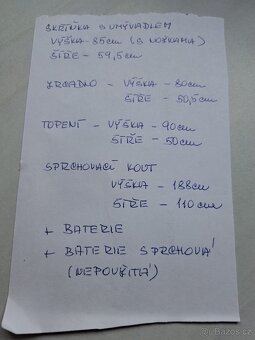 SKŘÍŇKA S UMÝVADLEM
VÝŠKA - 85cm (S NOŽKAMA)
ŠÍŘE - 59,5cm
ZRCADLO - VÝŠKA - 80cm
ŠÍŘE - 50,5cm
TOPENÍ - VÝŠKA - 90cm
ŠÍŘE - 50cm
SPRCHOVACÍ KOUT
VÝŠKA - 188cm
ŠÍŘE - 110cm
+ BATERIE
+ BATERIE SPRCHOVÁ
(NEPOUŽITÁ)
© Bazos.cz